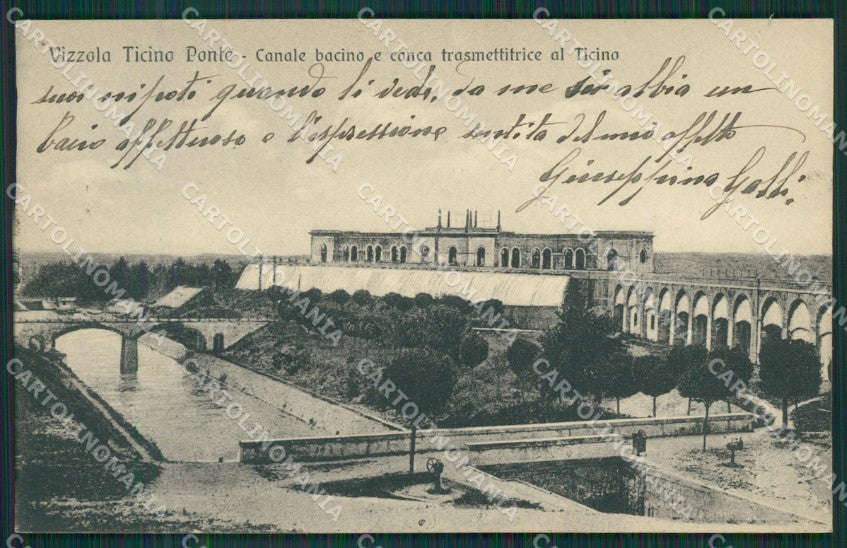 Vizzola Ticino Ponte - Canale bacino e conca trasmettitrice al Ticino
suoi nipoti quando li vede, da me abbia un
bacio affettuoso e l'espressione sentita del mio affetto
Giuseppina Galli
CARTOLINOMANIA